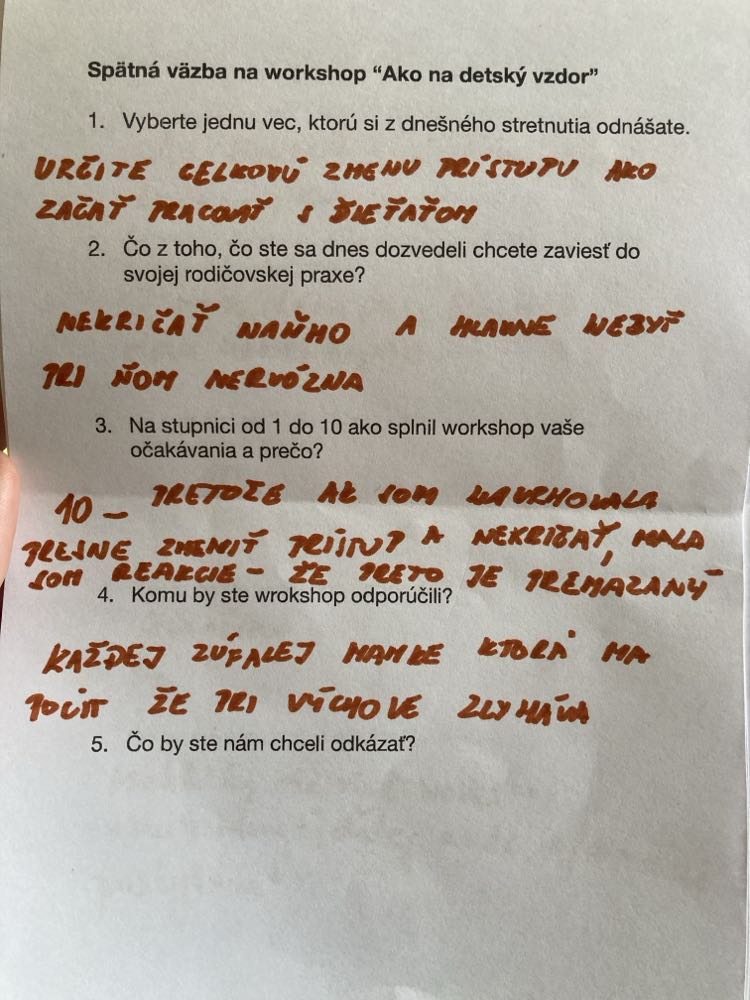 Spätná väzba na workshop "Ako na detský vzdor"
1. Vyberte jednu vec, ktorú si z dnešného stretnutia odnášate.
URČITE CELKOVÚ ZMENU PRÍSTUPU AKO
ZAČAŤ PRACOVAŤ S DIEŤAŤOM
2. Čo z toho, čo ste sa dnes dozvedeli chcete zaviesť do
svojej rodičovskej praxe?
NEKRIČAŤ NAŇHO A HLAVNE NEBYŤ
PRI ŇOM NERVÓZNA
3. Na stupnici od 1 do 10 ako splnil workshop vaše
očakávania a prečo?
10 - PRETOŽE AK SOM NAVRHOVALA
PRESNE ZMENIŤ PRÍSTUP A NEKRIČAŤ, MALA
SOM REAKCIE - ŽE PRETO JE PREMAZANÝ
4. Komu by ste wrokshop odporúčili?
KAŽDEJ ZÚFALEJ MAMKE KTORÁ MA
POCIT ŽE PRI VÝCHOVE ZLYHÁVA
5. Čo by ste nám chceli odkázať?